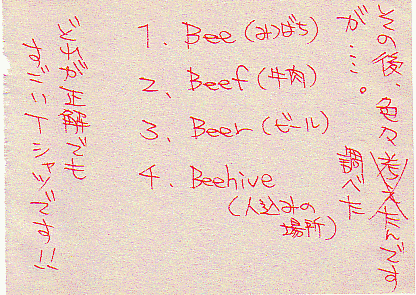 その後、色々考えたんです
調べた
が…。
1. Bee (みつばち)
2. Beef (牛肉)
3. Beer (ビール)
4. Beehive
(人込みの
場所)
どれが正解でも
すごいT-シャツです!!!